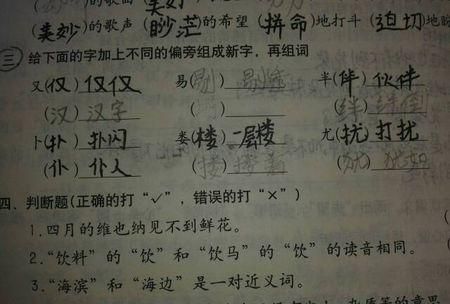 (美妙)的歌声 (眇茫)的希望 (拼命)地打斗 (迫切)地
三 给下面的字加上不同的偏旁组成新字,再组词
又(仅) 仅仅 易(剔) 半(伴) 伙伴
(汉) 汉字 ( ) (绊) 绊倒
卜(扑) 扑闪 娄(楼) 一层楼 尤(扰) 打扰
(仆) 仆人 (搂) 搂着 (犹) 犹如
四、判断题(正确的打“√”,错误的打“×”)
1.四月的维也纳见不到鲜花。
2.“饮料”的“饮”和“饮马”的“饮”的读音相同。
3.“海滨”和“海边”是一对近义词。